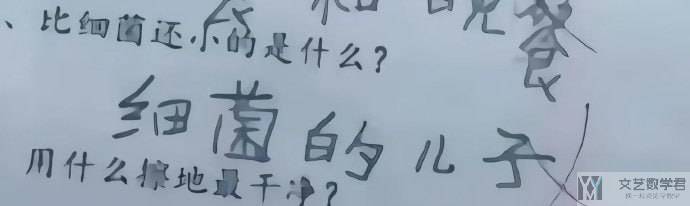 和晚餐
、比细菌还小的是什么？
细菌的儿子
用什么擦地最干净？
文艺数学君